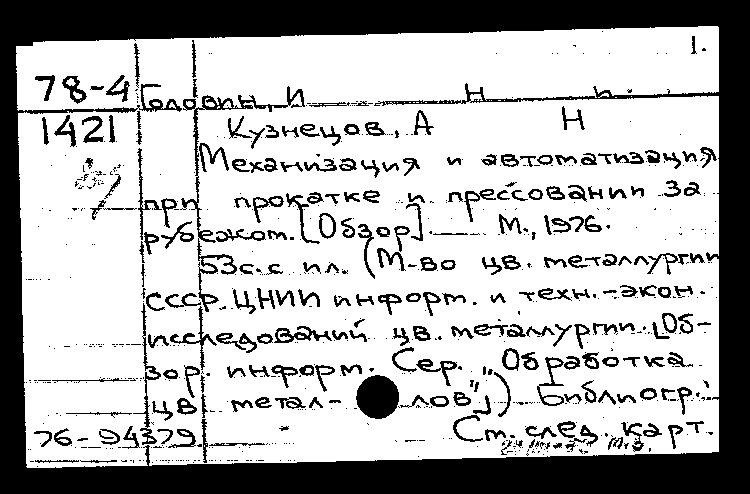 1.
78-4 Головин, И Н п.
1421 Кузнецов, А Н
Механизация и автоматизация
при прокатке и прессовании за
рубежом. [Обзор]. М., 1976.
53с. с ил. (М-во цв. металлургии
СССР. ЦНИИ информ. и техн.-экон.
исследований цв. металлургии. [Об-
зор. информ. Сер. "Обработка
цв метал- лов"]). Библиогр.:
76-94379 Ст. след. карт.